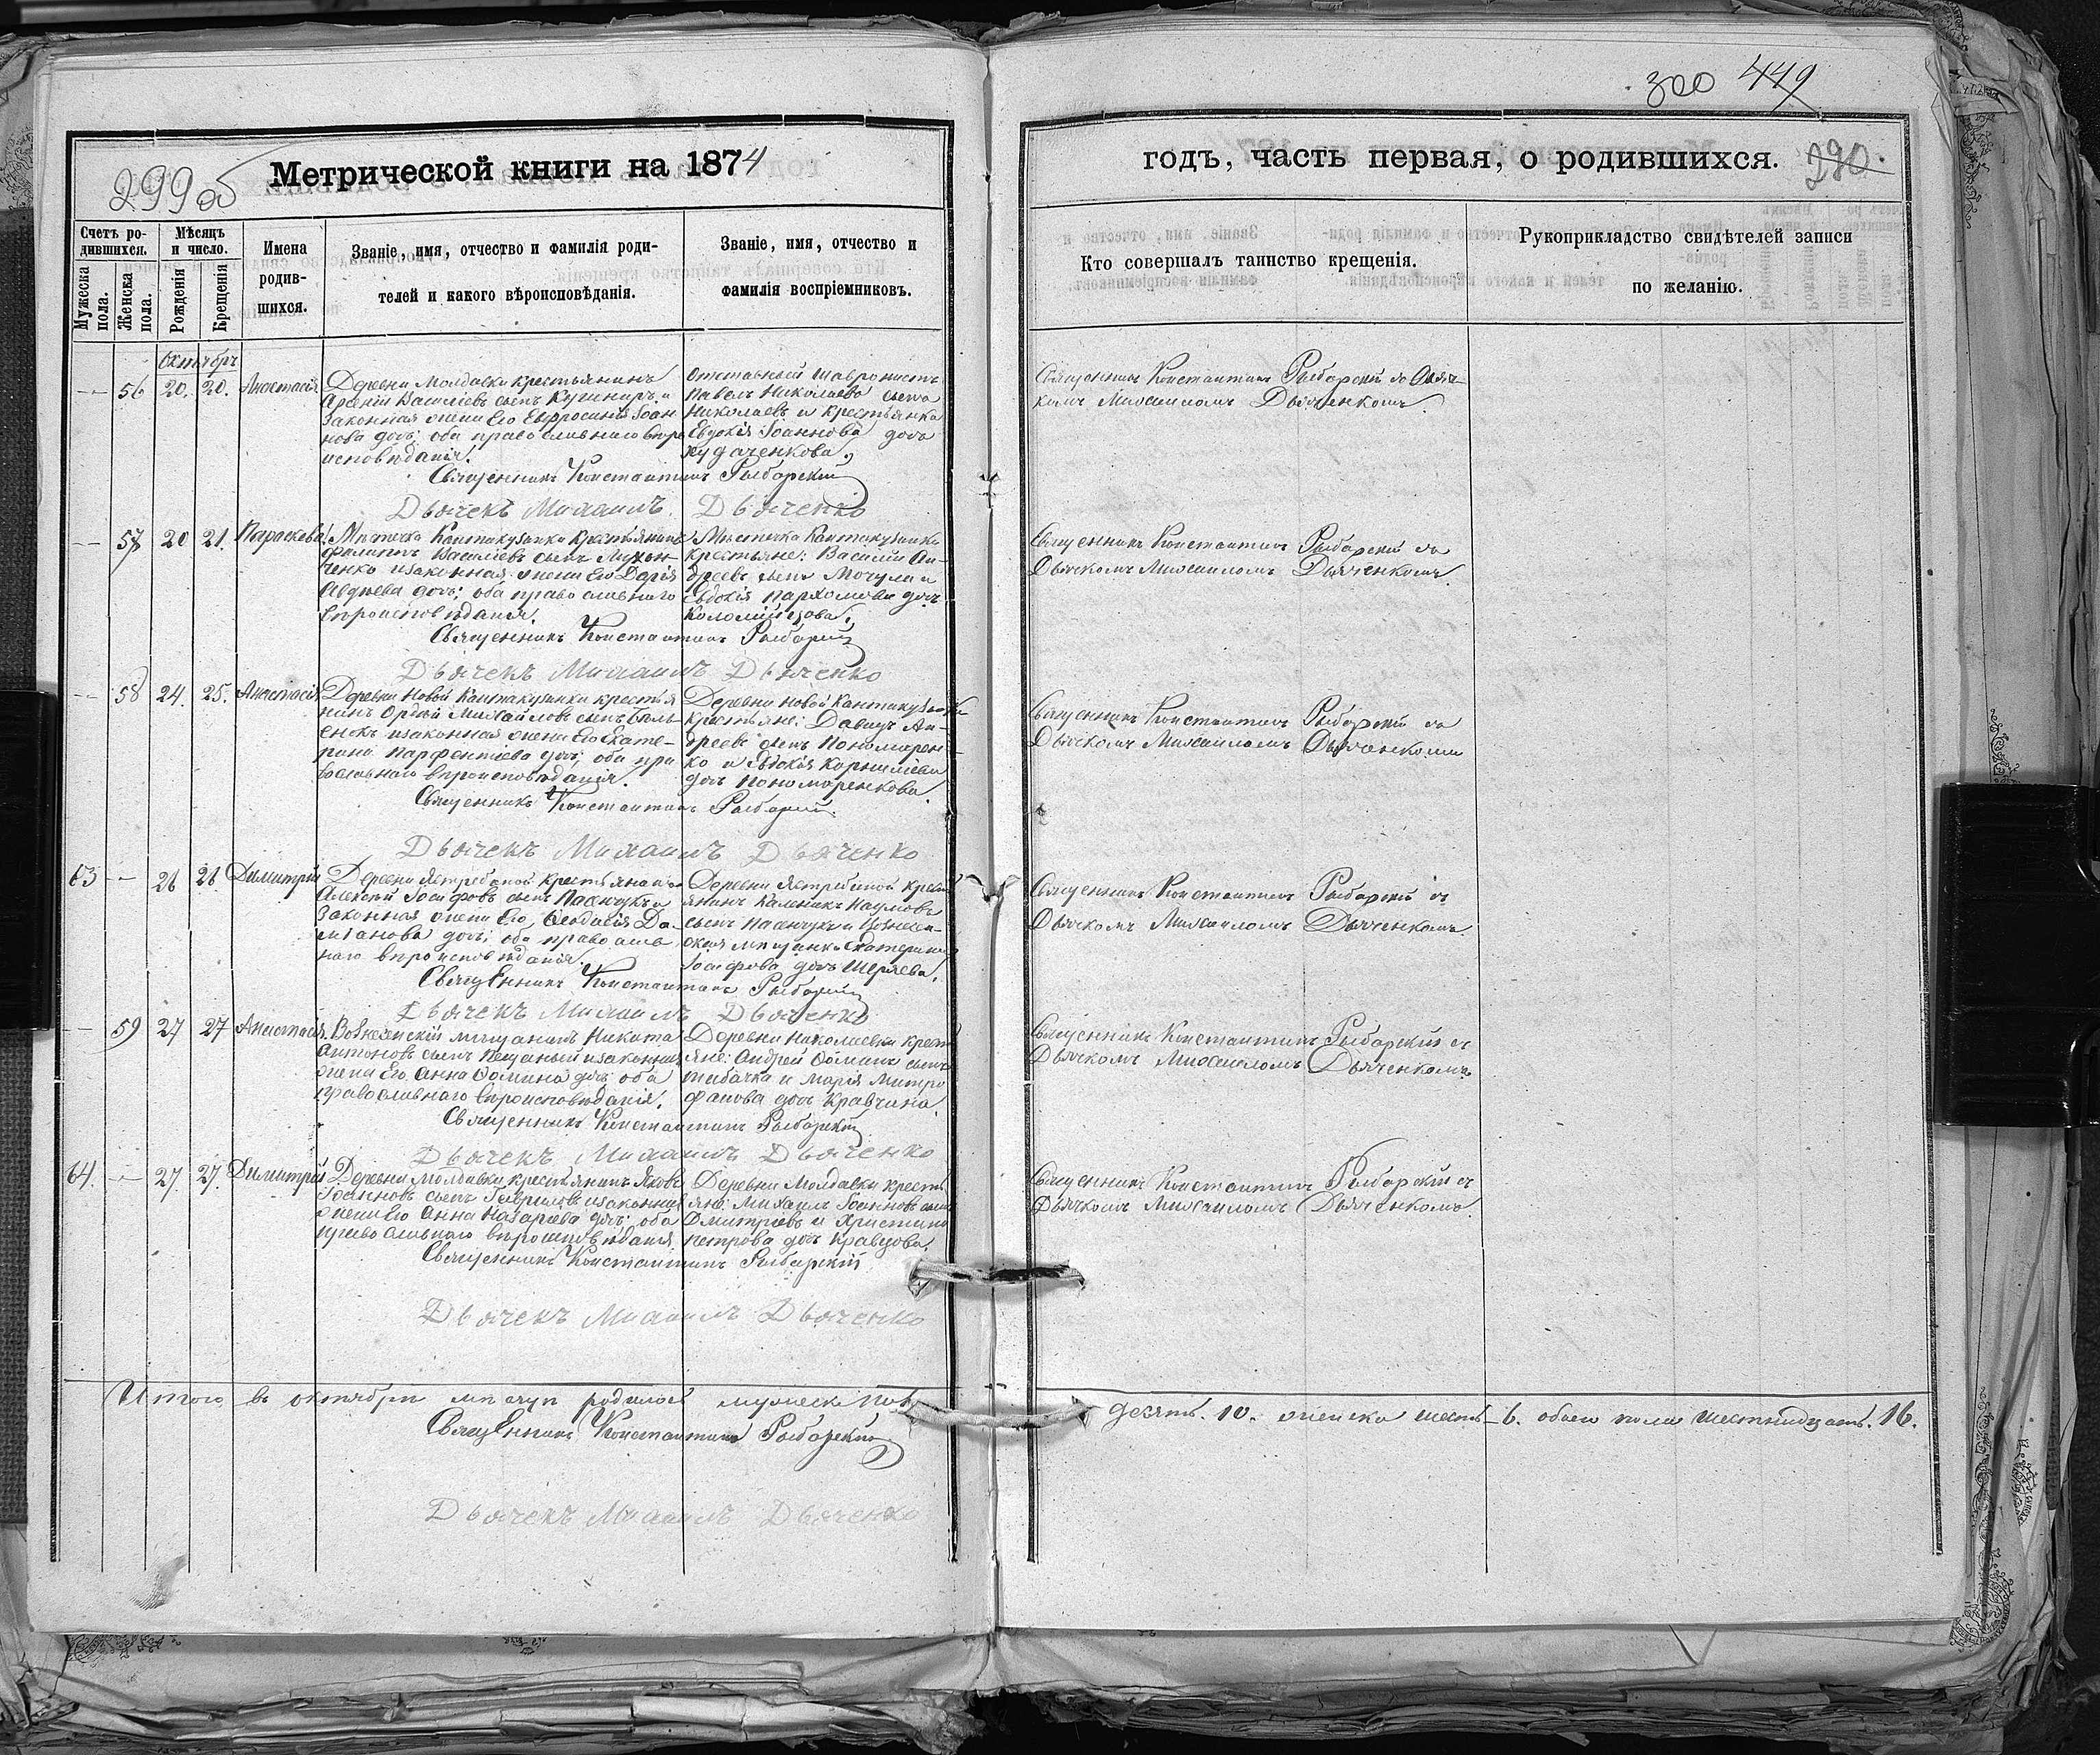 299 об
Метрической книги на 1874
Счетъ родившихся.
Мужеска пола.
Женска пола.
Мѣсяцъ и число.
Рожденія
Крещенія
Имена родившихся.
Званіе, имя, отчество и фамилія родителей и какого вѣроисповѣданія.
Званіе, имя, отчество и фамилія воспріемниковъ.
Октябрь
56 20. 20. Анастасія
Деревни Молдавки крестьянинъ
Арсеній Васильевъ сынъ и
законная жена Его Евфросинія Іоан
нова дочь; оба православнаго вѣро
исповѣданія.
Отставный
Павелъ Николаевъ сынъ
Николаевъ и крестьянка
Евдокія Іоаннова дочь
Кудаченкова.
Священникъ Константинъ Рыбарскій
Дьячекъ Михаилъ Дьяченко
57 20 21. Параскева
Мѣстечка Кантакузинки Крестьянинъ
Филиппъ Васильевъ сынъ
ченко и законная жена Его Дарія
Авдѣева дочь; оба православнаго
вѣроисповѣданія.
Мѣстечка Кантакузинки
крестьяне: Василій Ан-
дреевъ сынъ Мочула и
Евдокія Пархомова дочь
Коломійцова.
Священникъ Константинъ Рыбарскій
Дьячекъ Михаилъ Дьяченко
58 24. 25. Анастасія
Деревни Новой Кантакузинки крестья
нинъ Михайловъ сынъ
и законная жена Его Екате-
рина Парфентіева дочь; оба пра
вославнаго вѣроисповѣданія.
Деревни Новой Кантакузинки
крестьяне: Давидъ Ан-
дреевъ сынъ Пономарен
ко и Евдокія Корнилiева
дочь Пономаренкова.
Священникъ Константинъ Рыбарскій
Дьячекъ Михаилъ Дьяченко
63 26 26 Димитрій
Деревни Ястребиной Крестьянинъ
Алексій Іосифовъ сынъ Пасичукъ и
законная жена Его Ѳеодосія Да-
міанова дочь; оба православ
наго вѣроисповѣданія.
Деревни Ястребиной крест
янинъ Каленикъ Наумовъ
сынъ Пасичукъ и Вознесен-
ская мѣщанка Екатерина
Іосифова дочь
Священникъ Константинъ Рыбарскій
Дьячекъ Михаилъ Дьяченко
59 27 27 Анастасія
Вознесенскій мѣщанинъ Никита
Антоновъ сынъ Пещаный и законная
жена Его Анна Ѳомина дочь оба
православнаго вѣроисповѣданія.
Деревни Николаевки крест
яне: Андрей Ѳоминъ сынъ
Табачка и Марія Митро
фанова дочь Кравчина.
Священникъ Константинъ Рыбарскій
Дьячекъ Михаилъ Дьяченко
64. 27. 27. Димитрій
Деревни Молдавки крестьянинъ Яковъ
Іоанновъ сынъ Гавриловъ и законная
жена Его Анна Назарiева дочь; оба
православнаго вѣроисповѣданія
Деревни Молдавки кресть
яне: Михаилъ Іоанновъ сынъ
Дмитріевъ и Христина
Петрова дочь Кравцова.
Священникъ Константинъ Рыбарскій
Дьячекъ Михаилъ Дьяченко
Итого въ октябрѣ мѣсяцѣ родилось мужеска пола
Священникъ Константинъ Рыбарскій
Дьячекъ Михаилъ Дьяченко
300 449
годъ, часть первая, о родившихся. 290.
Кто совершалъ таинство крещенія.
Рукоприкладство свидѣтелей записи по желанію.
Священникъ Константинъ Рыбарскій со Дьяч-
комъ Михаиломъ Дьяченкомъ.
Священникъ Константинъ Рыбарскій со
Дьячкомъ Михаиломъ Дьяченкомъ.
Священникъ Константинъ Рыбарскій со
Дьячкомъ Михаиломъ Дьяченкомъ
Священникъ Константинъ Рыбарскій съ
Дьячкомъ Михаиломъ Дьяченкомъ.
Священникъ Константинъ Рыбарскій съ
Дьячкомъ Михаиломъ Дьяченкомъ
Священникъ Константинъ Рыбарскій съ
Дьячкомъ Михаиломъ Дьяченкомъ.
десять. 10. женска шесть - 6. обоего пола шестнадцать. 16.